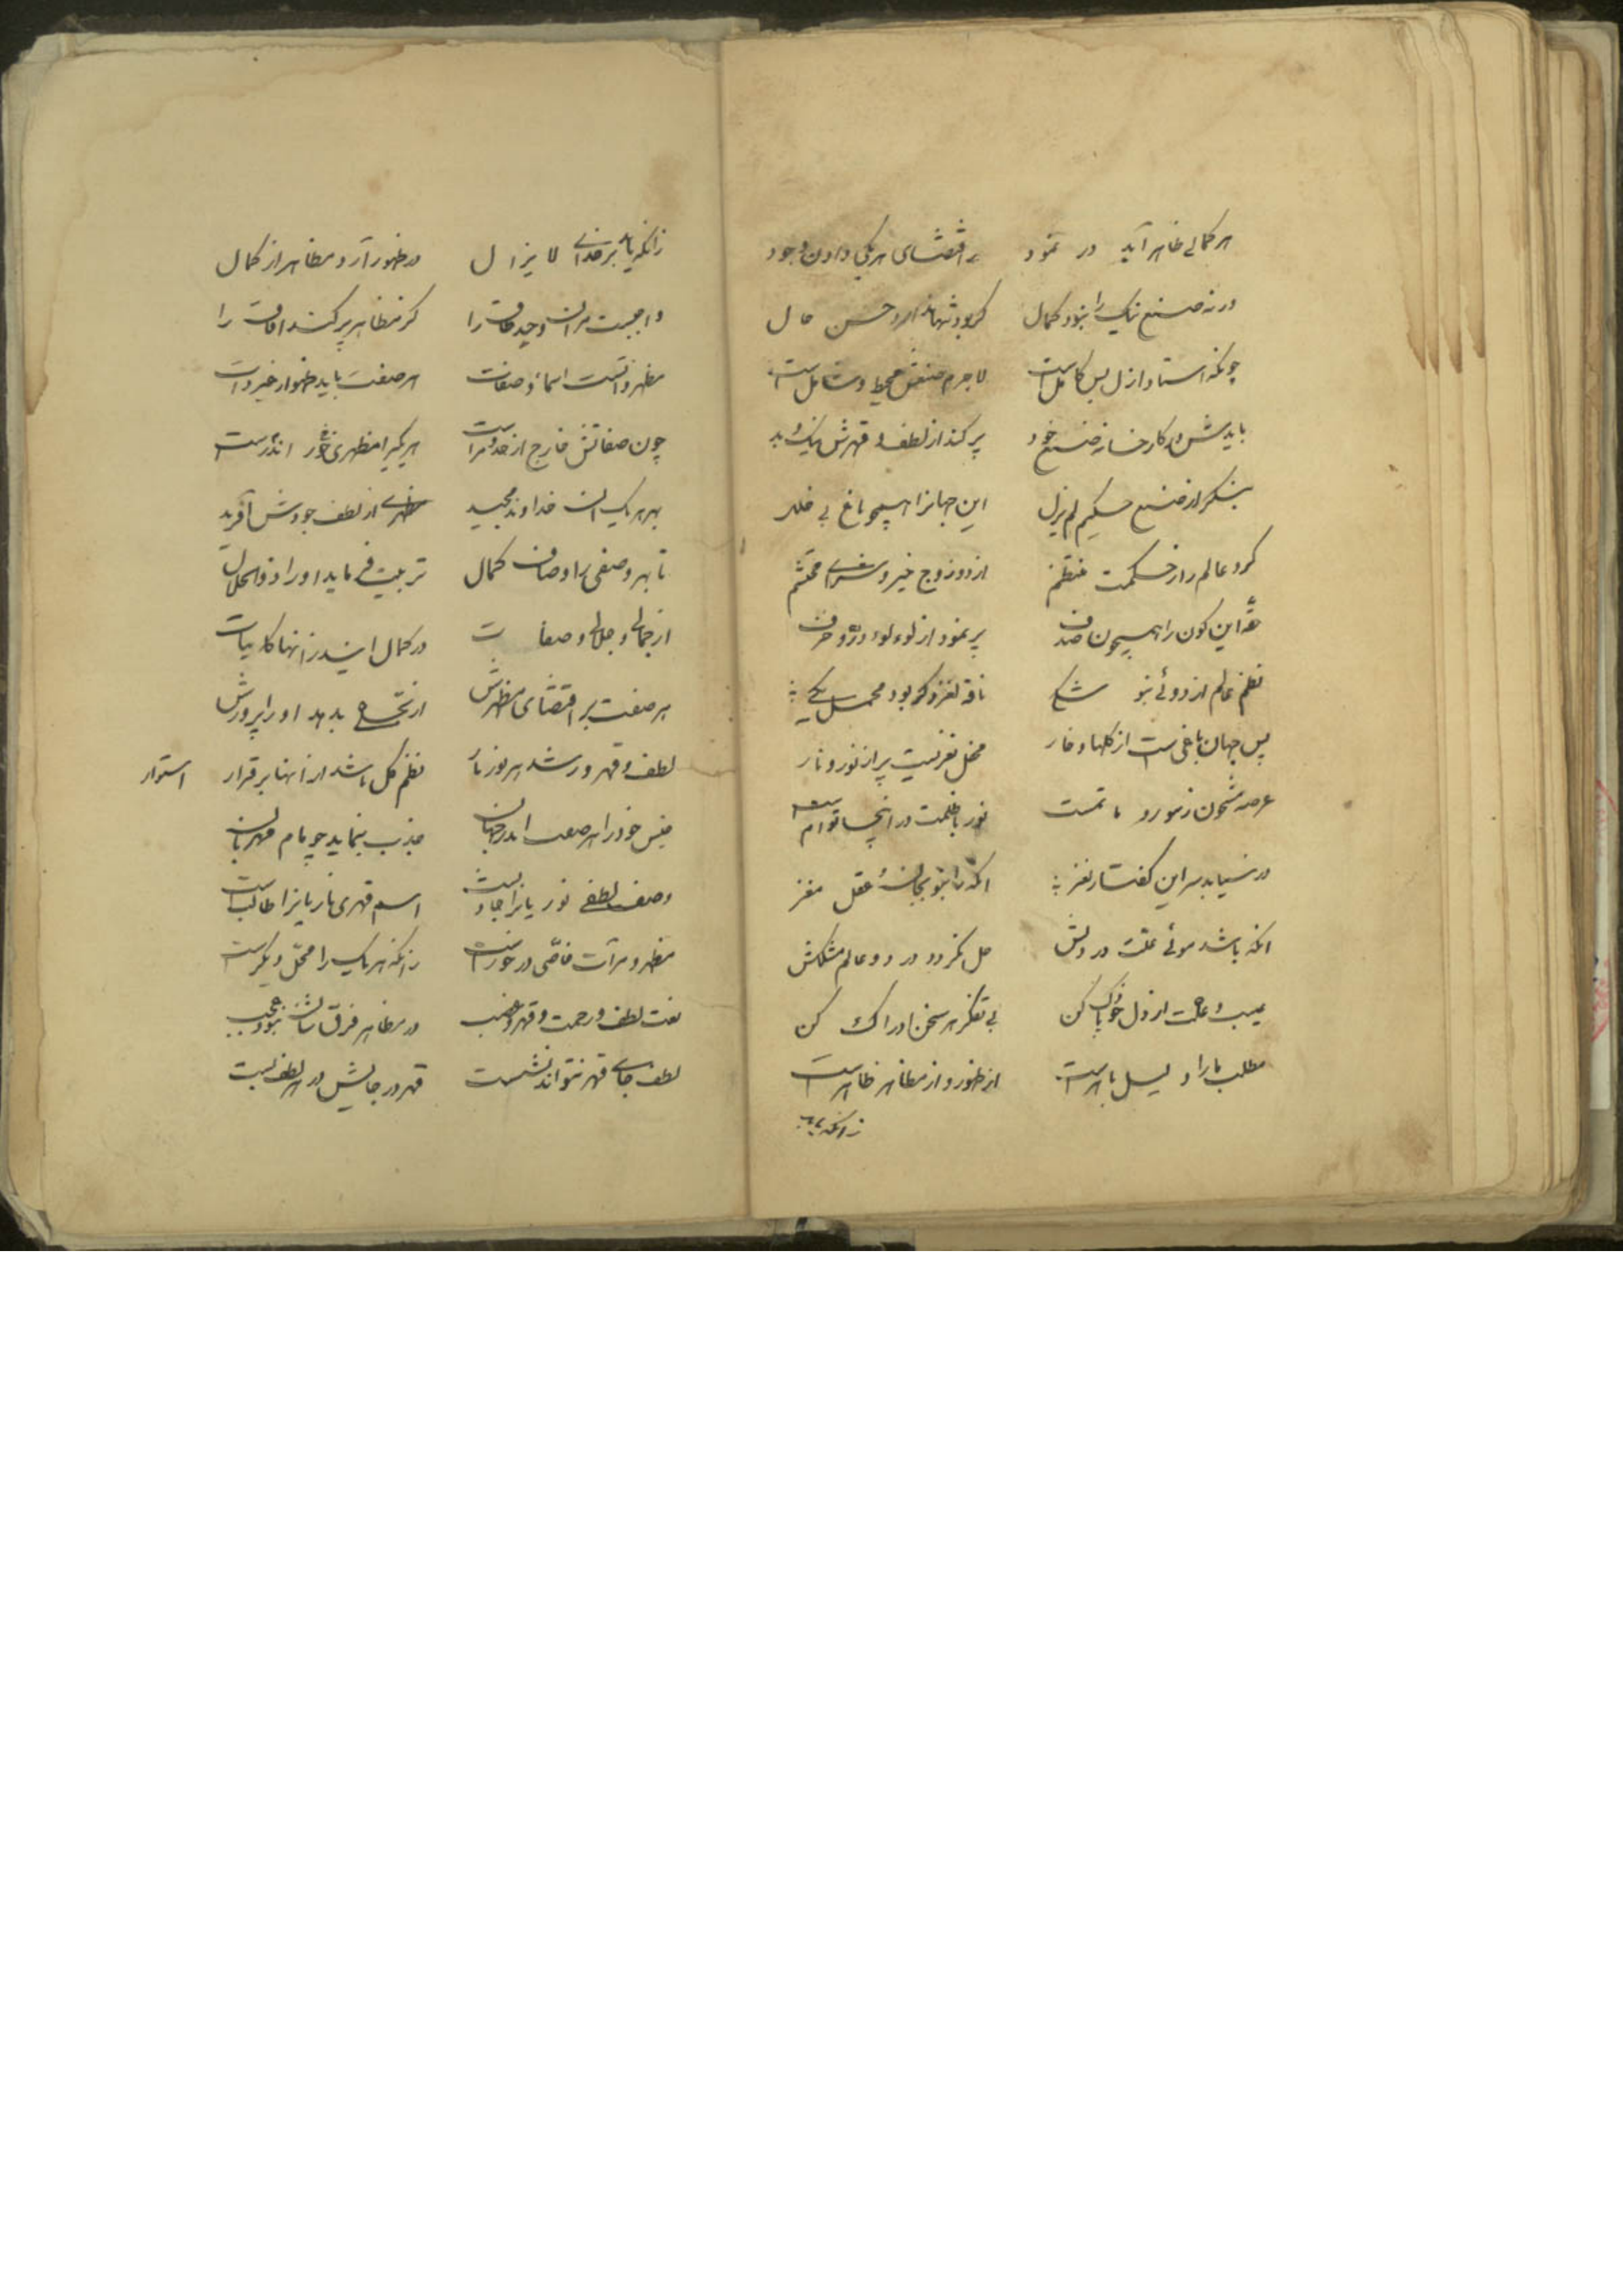 هر کمالی ظاهر آید در نمود اقتضای هر یکی دادن وجود
ورنه صنع نیک را نبود کمال کر بود تنها حسن حال
چونکه استاد ازل بس کامل است لاجرم صنعش محیط و شامل است
بایدش در کارخانه صنع خود پر کند از لطف و قهرش نیک و بد
بنگر از صنع حکیم لم یزل این جهانرا همچو باغ بی خلل
کرد عالم را ز حکمت منتظم از دو زوج خیر و شر
حقه این کون را همچون صدف پر نمود از لوء لوء و در و خزف
نظم عالم از دوئی نبو شکی ناقه نغزد کر بود محمل یکی
پس جهان باغی است از کلها و خار محفل نغزیست پر از نور و نار
عرصه مشحون ز سور و ماتمست نور با ظلمت در اینجا توام است
در نیابد سر این کفتار نغز انکه را نبو بجان عقل مغز
انکه باشد موئی علت در دلش حل نکردد در دو عالم مشکلش
عیب و علت از دل خود پاک کن بی تفکر هر سخن ادراک کن
مطلب ما را دلیل باهر است از ظهور و از مظاهر ظاهر است
زانکه باید
زانکه باید بر خدای لا یزال در ظهور آرد مظاهر از کمال
واجبست مر ان وحید ذات را کز مظاهر پر کند افات را
مظهر ذاتست اسما و صفات هر صفت باید ظهور از خیر ذات
چون صفاتش خارج از حد و مر است هر یکیرا مظهری در خور است
بهر هر یک ان خداوند مجید مظهری از لطف جودش آفرید
تا بهر وصفی ز اوصاف کمال تربیت فرماید او را ذو الجلال
از جمالی و جلالی و صفات در کمال ایند زانها کاینات
هر صفت بر اقتضای مظهرش از تجلی بدهد او را پرورش
لطف و قهر ورشد هر نور نار نظم کل باشد از انها بر قرار استوار
جنس خود را هر صفت اندر جهان جذب بنماید چو مام مهربان
وصف لطفی نوریانرا جاذبست اسم قهری ناریانرا طالبست
مظهر و مرآت خاصی در خور است زانکه هر یک را محل دیکر است
نعت لطف و رحمت و قهر و غضب در مظاهر فرق شان نبود عجب
لطف جای قهر نتواند نشست قهر در جایش در لطف بست